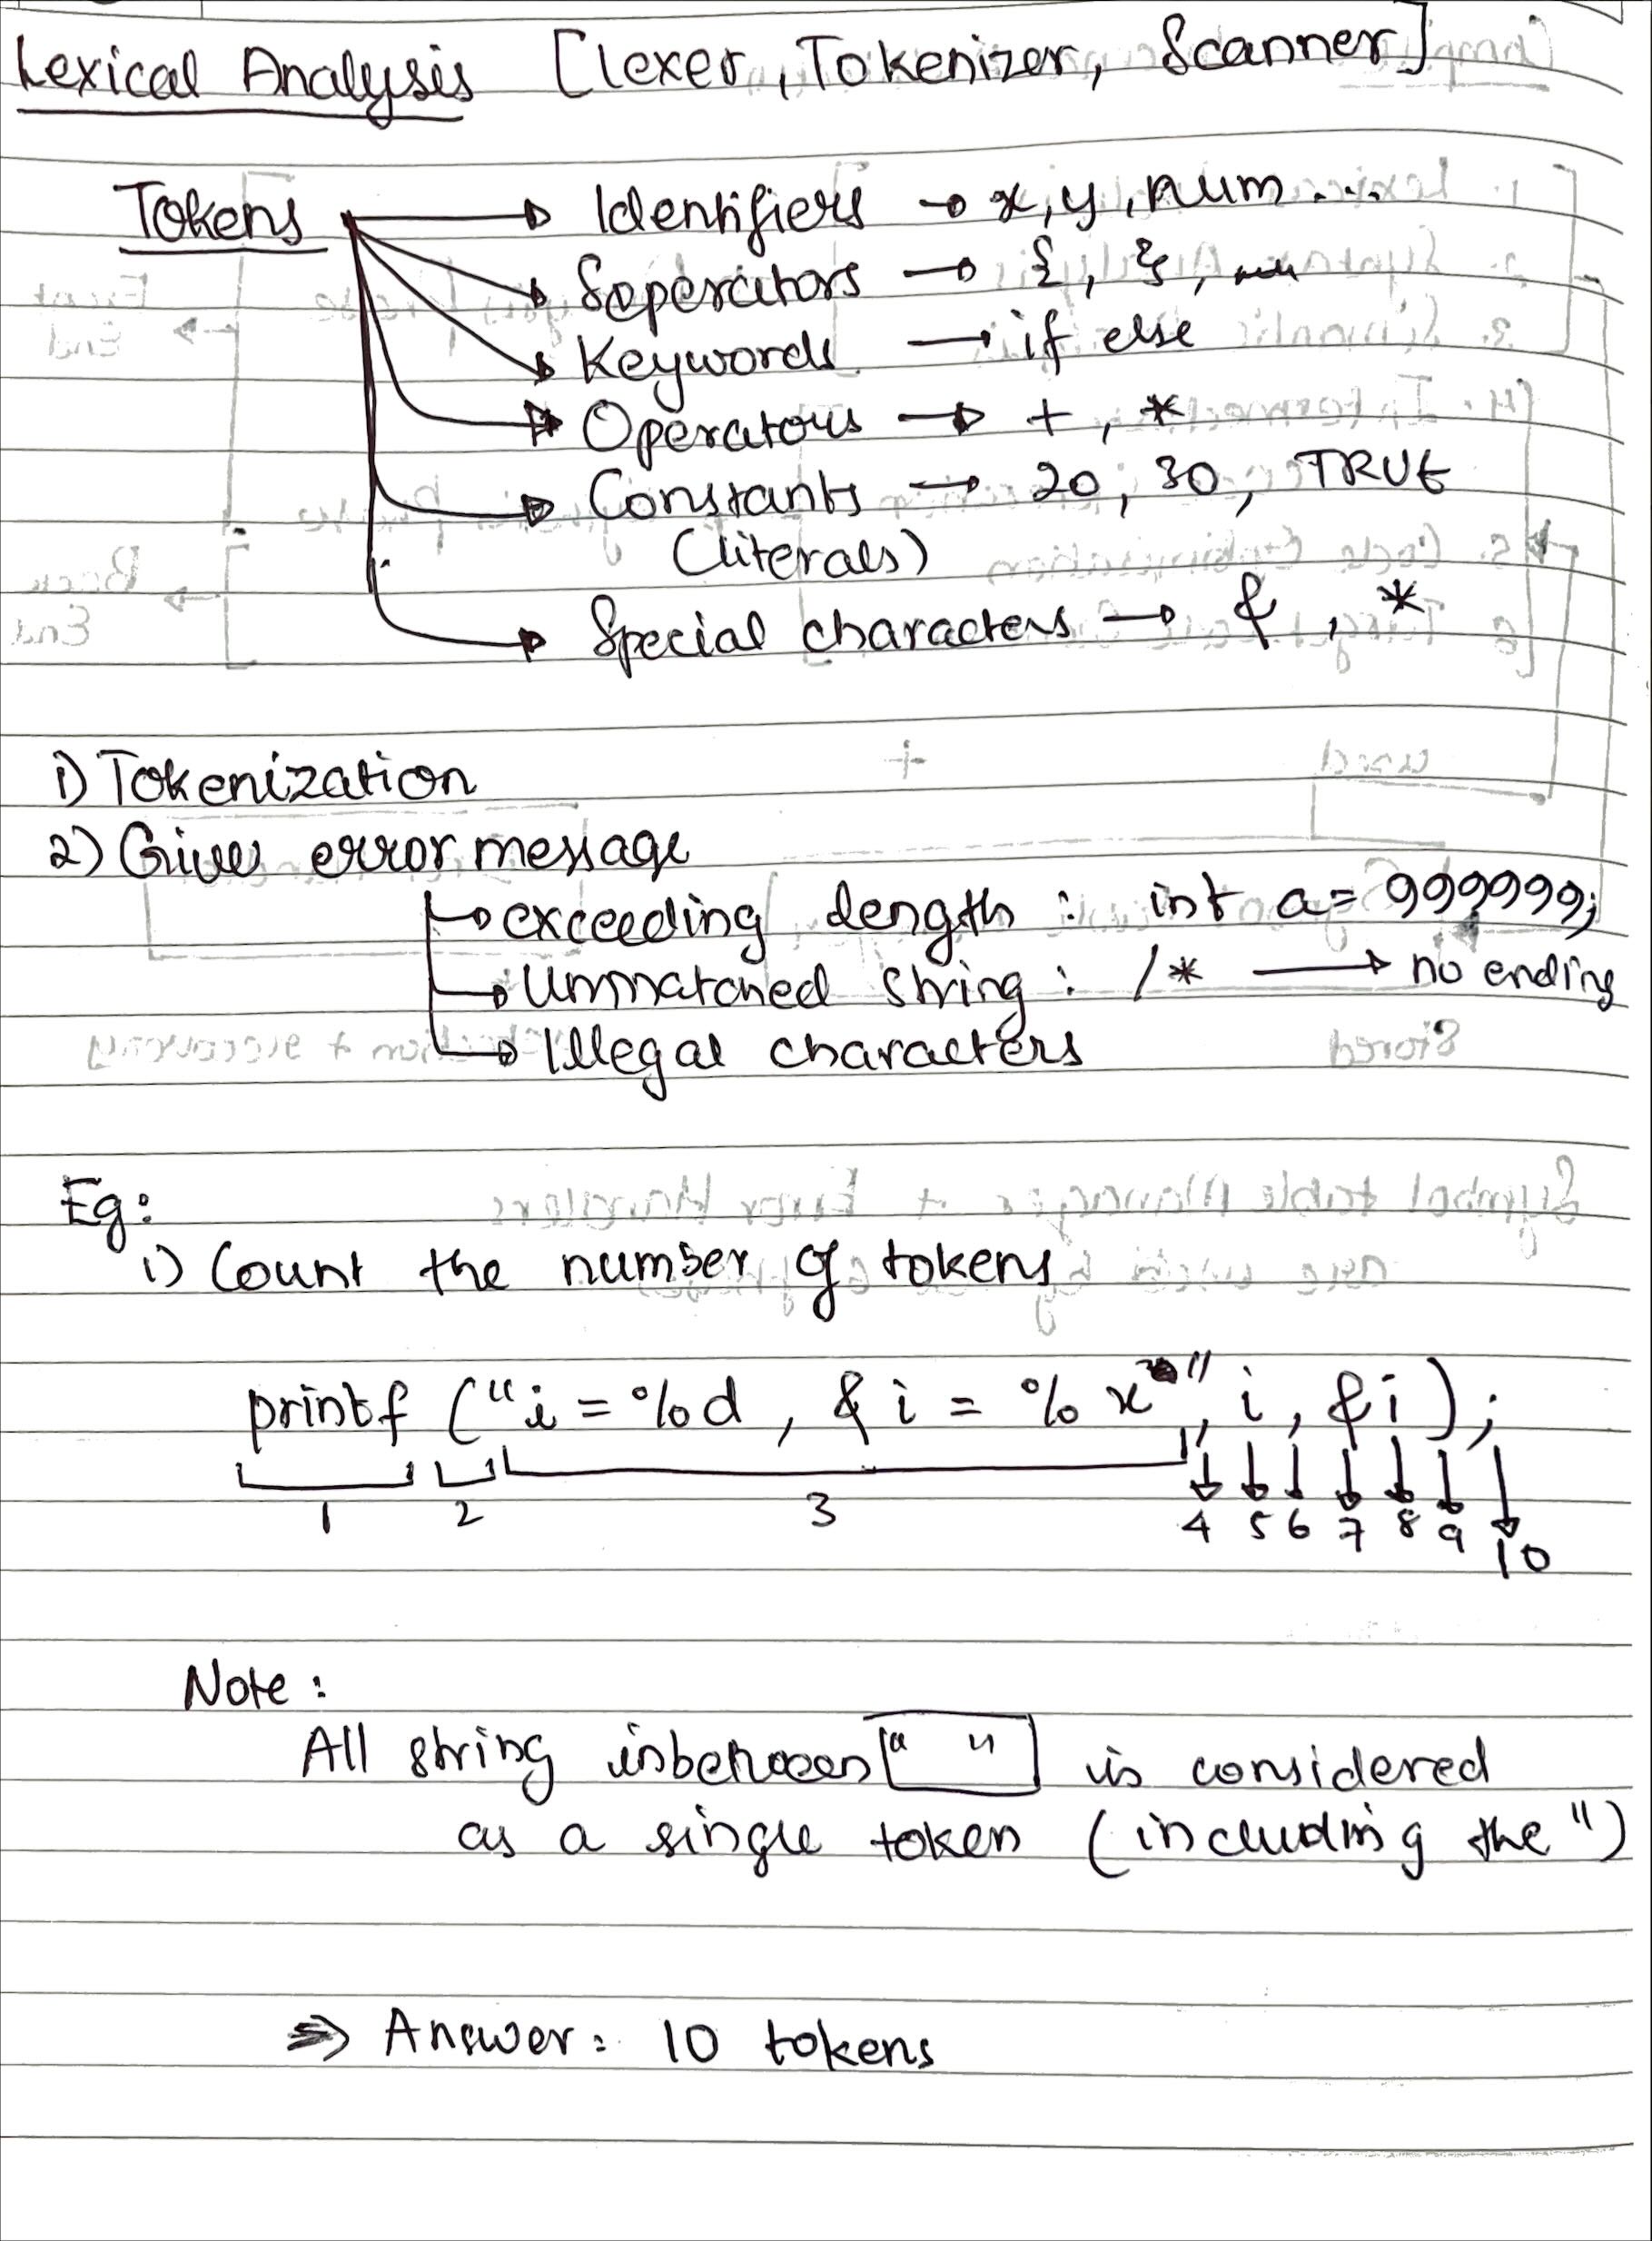 Lexical Analysis [lexer, Tokenizer, Scanner]
Tokens → Identifiers → x, y, num ...
→ Seperators → {, },
→ Keywords → if else
→ Operators → +, *
→ Constants → 20, 30, TRUE
(literals)
→ Special characters → &, *
1) Tokenization
2) Gives error message
→ exceeding length : int a= 999999;
→ Unmatched string : /* → no ending
→ Illegal characters
Eg:
1) Count the number of tokens
printf ("i = %d , & i = % x", i, &i );
1 2 3 4 5 6 7 8 9 10
Note :
All string inbetween " " is considered
as a single token (including the ")
⇒ Answer: 10 tokens